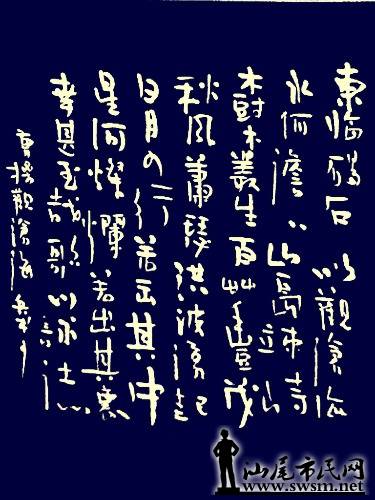 東臨碣石以觀滄海
水何澹々山島竦峙
樹木叢生百艸豐茂
秋風蕭瑟洪波湧起
日月之行若出其中
星河燦爛若出其裏
幸甚至哉歌以詠志
曹操觀滄海
汕尾市民网
www.swsm.net